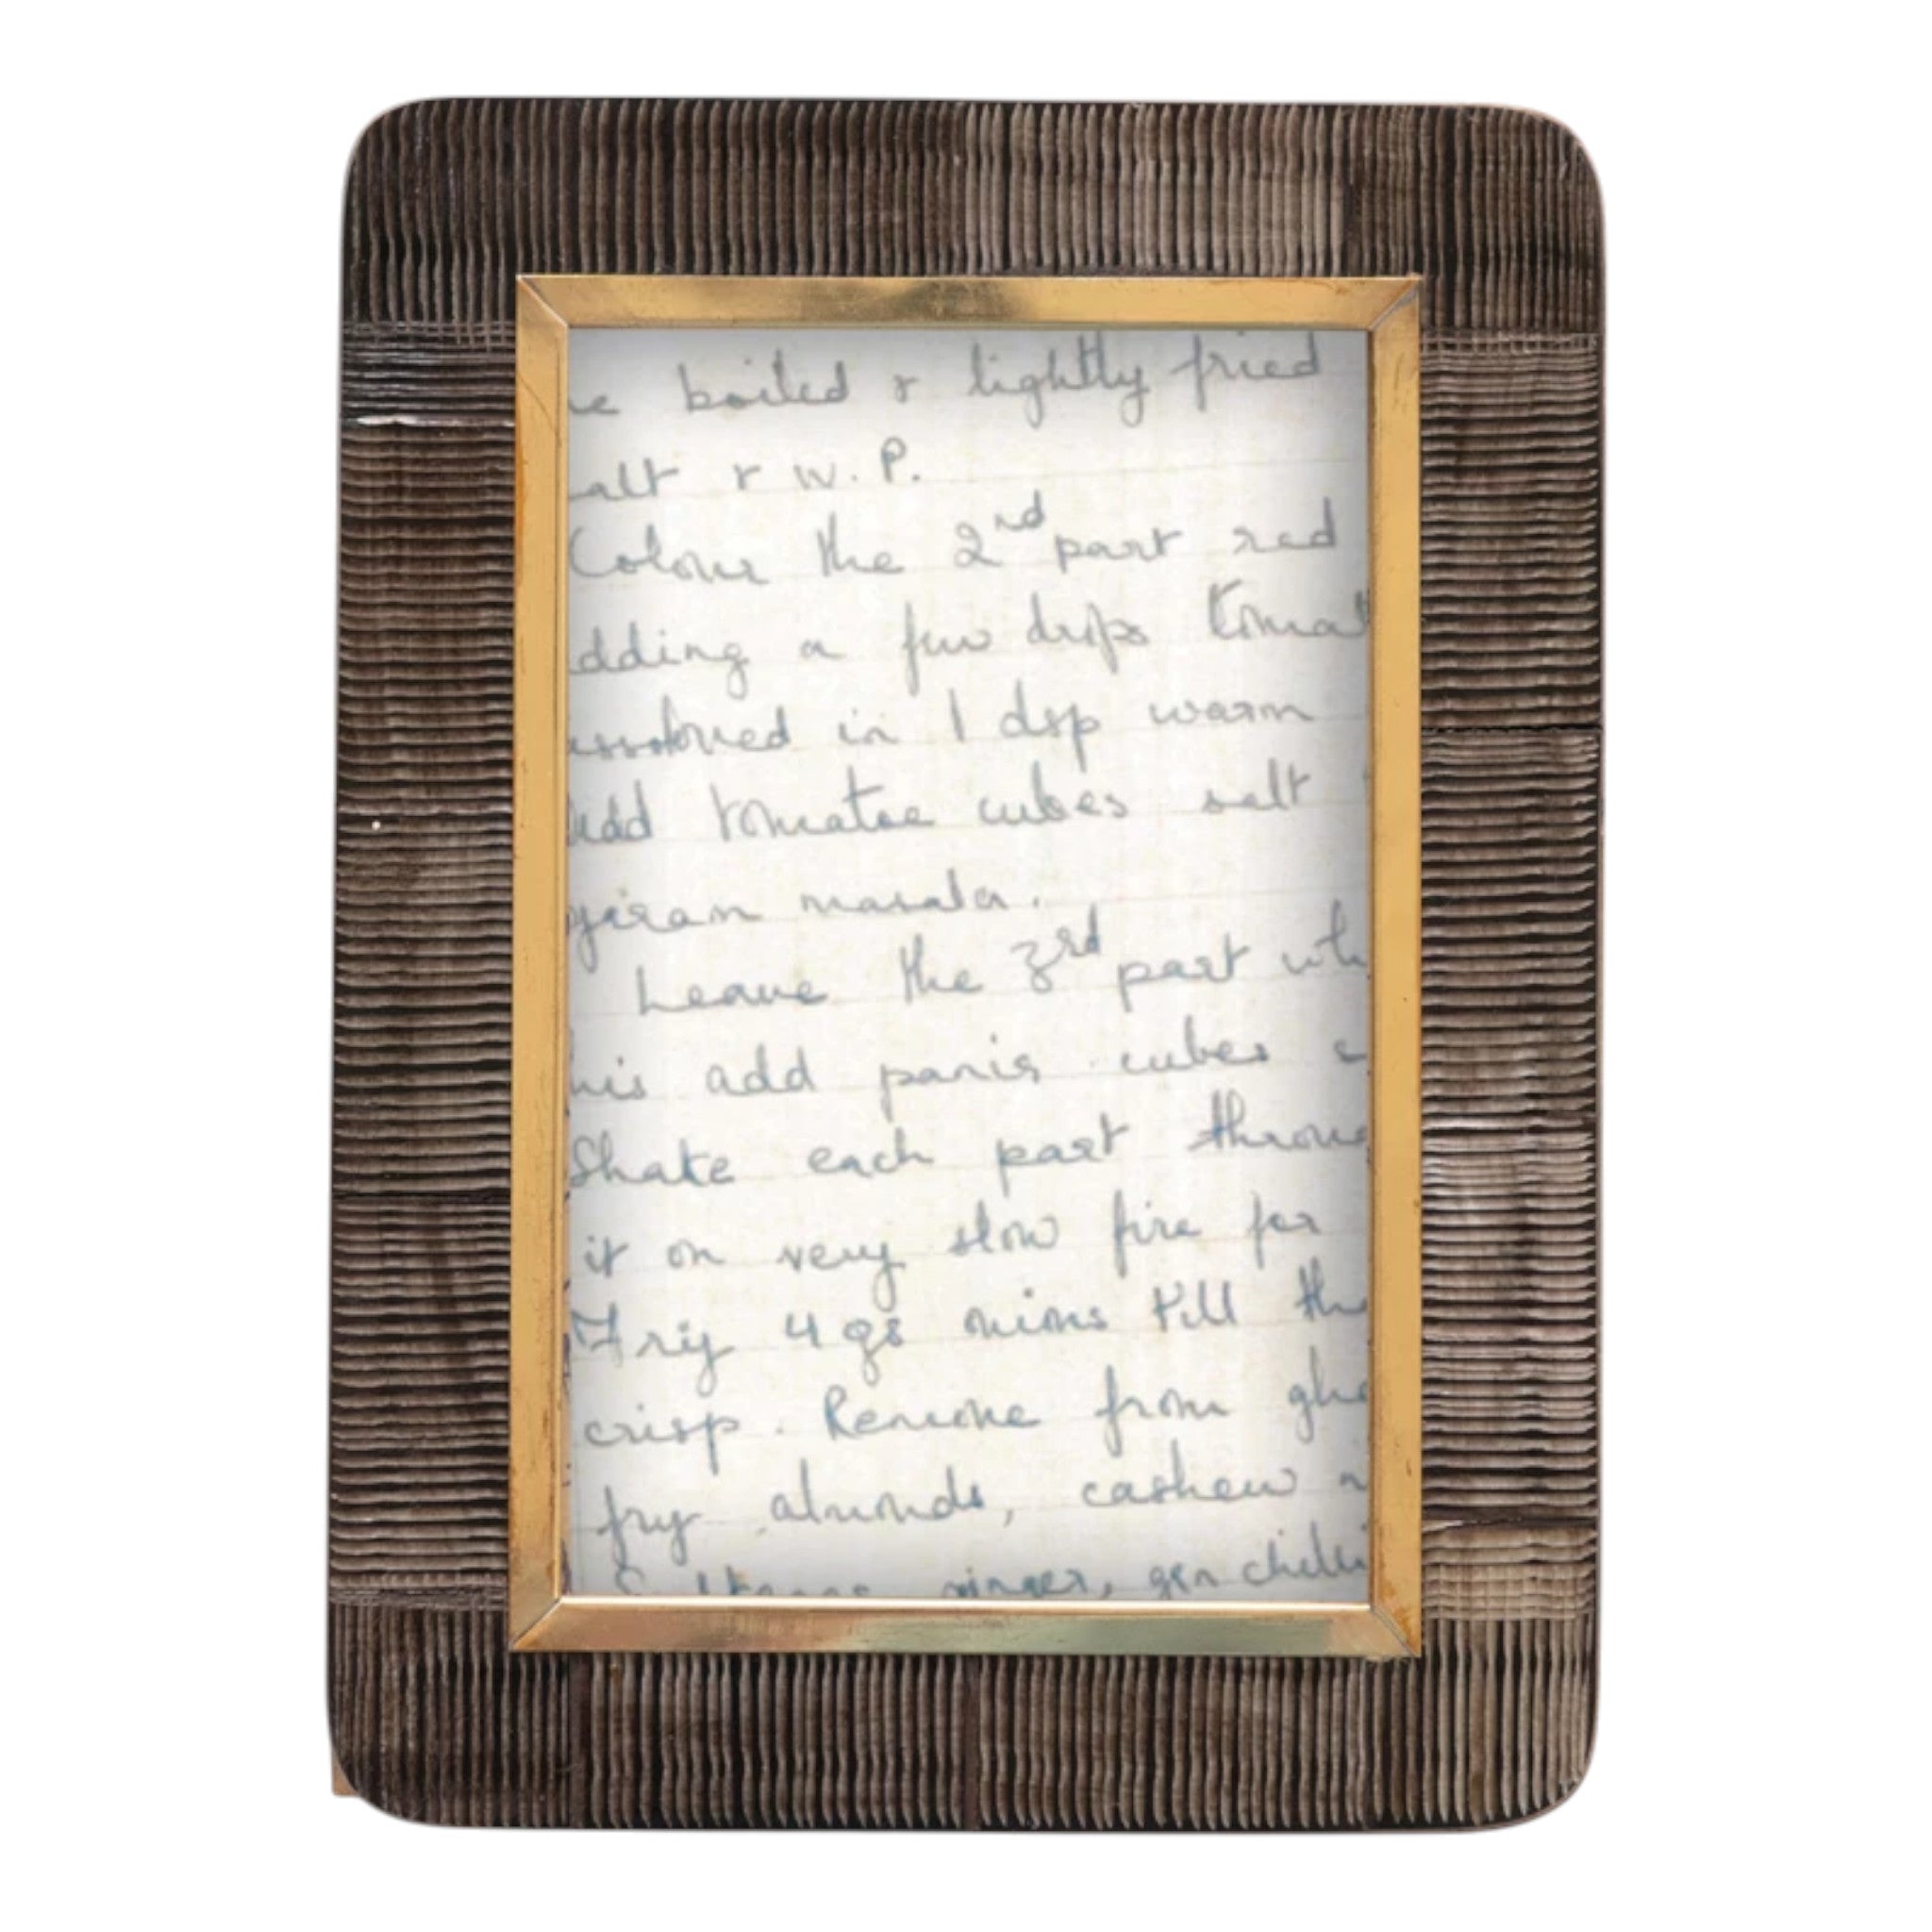 e boiled & lightly fried
alt & w. P.
Colour the 2nd part red
dding a few drops tomat
issolved in 1 dsp warm
Add tomatoe cubes salt
garam masala.
Leave the 3rd part whi
his add panir cubes
Shake each part throug
it on very slow fire for
Fry 4 gs onions till the
crisp. Remove from ghe
fry almonds, cashew n
ginger, grn chilli